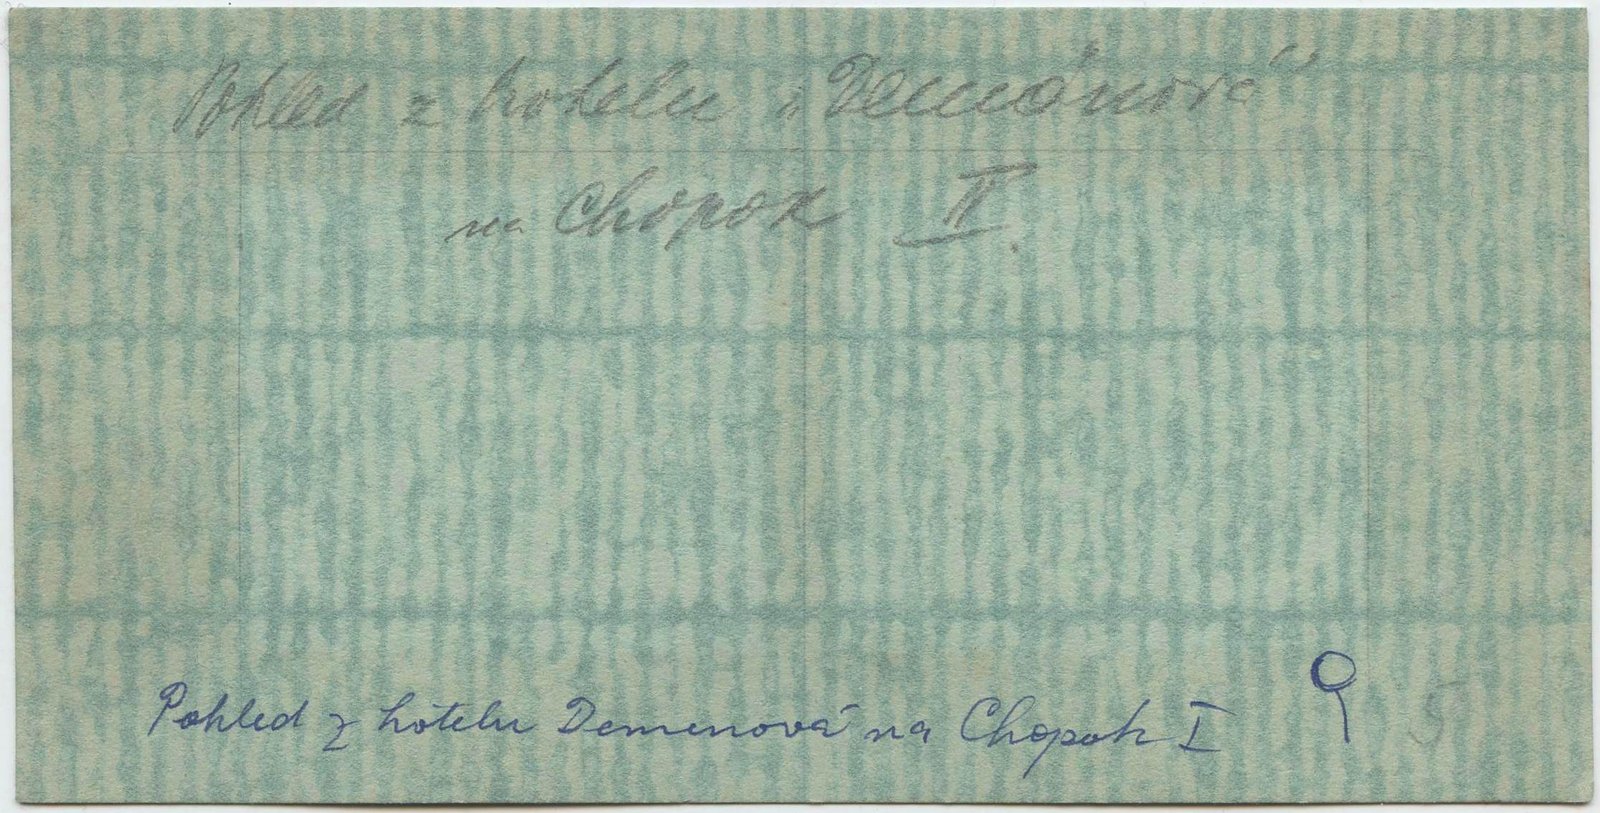 Pohled z hotelu „Demänová"
na Chopok II.
Pohled z hotelu Demenová na Chopok I
5